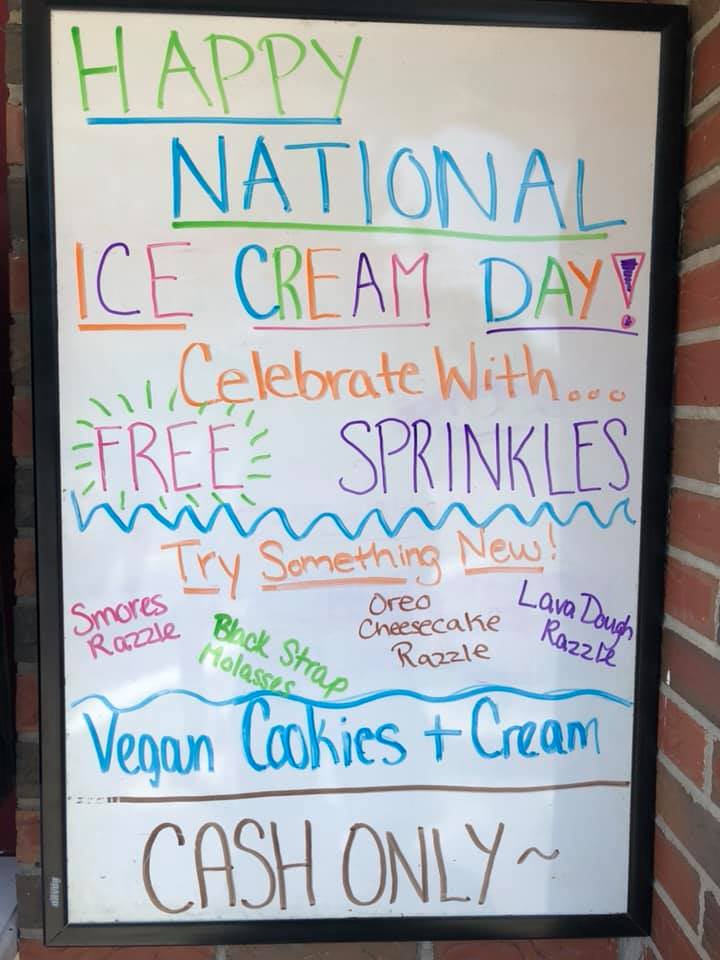 HAPPY
NATIONAL
ICE CREAM DAY!
Celebrate With...
FREE SPRINKLES
Try Something New!
Smores
Razzle
Black Strap
Molasses
Oreo
Cheesecake
Razzle
Lava Dough
Razzle
Vegan Cookies + Cream
CASH ONLY~